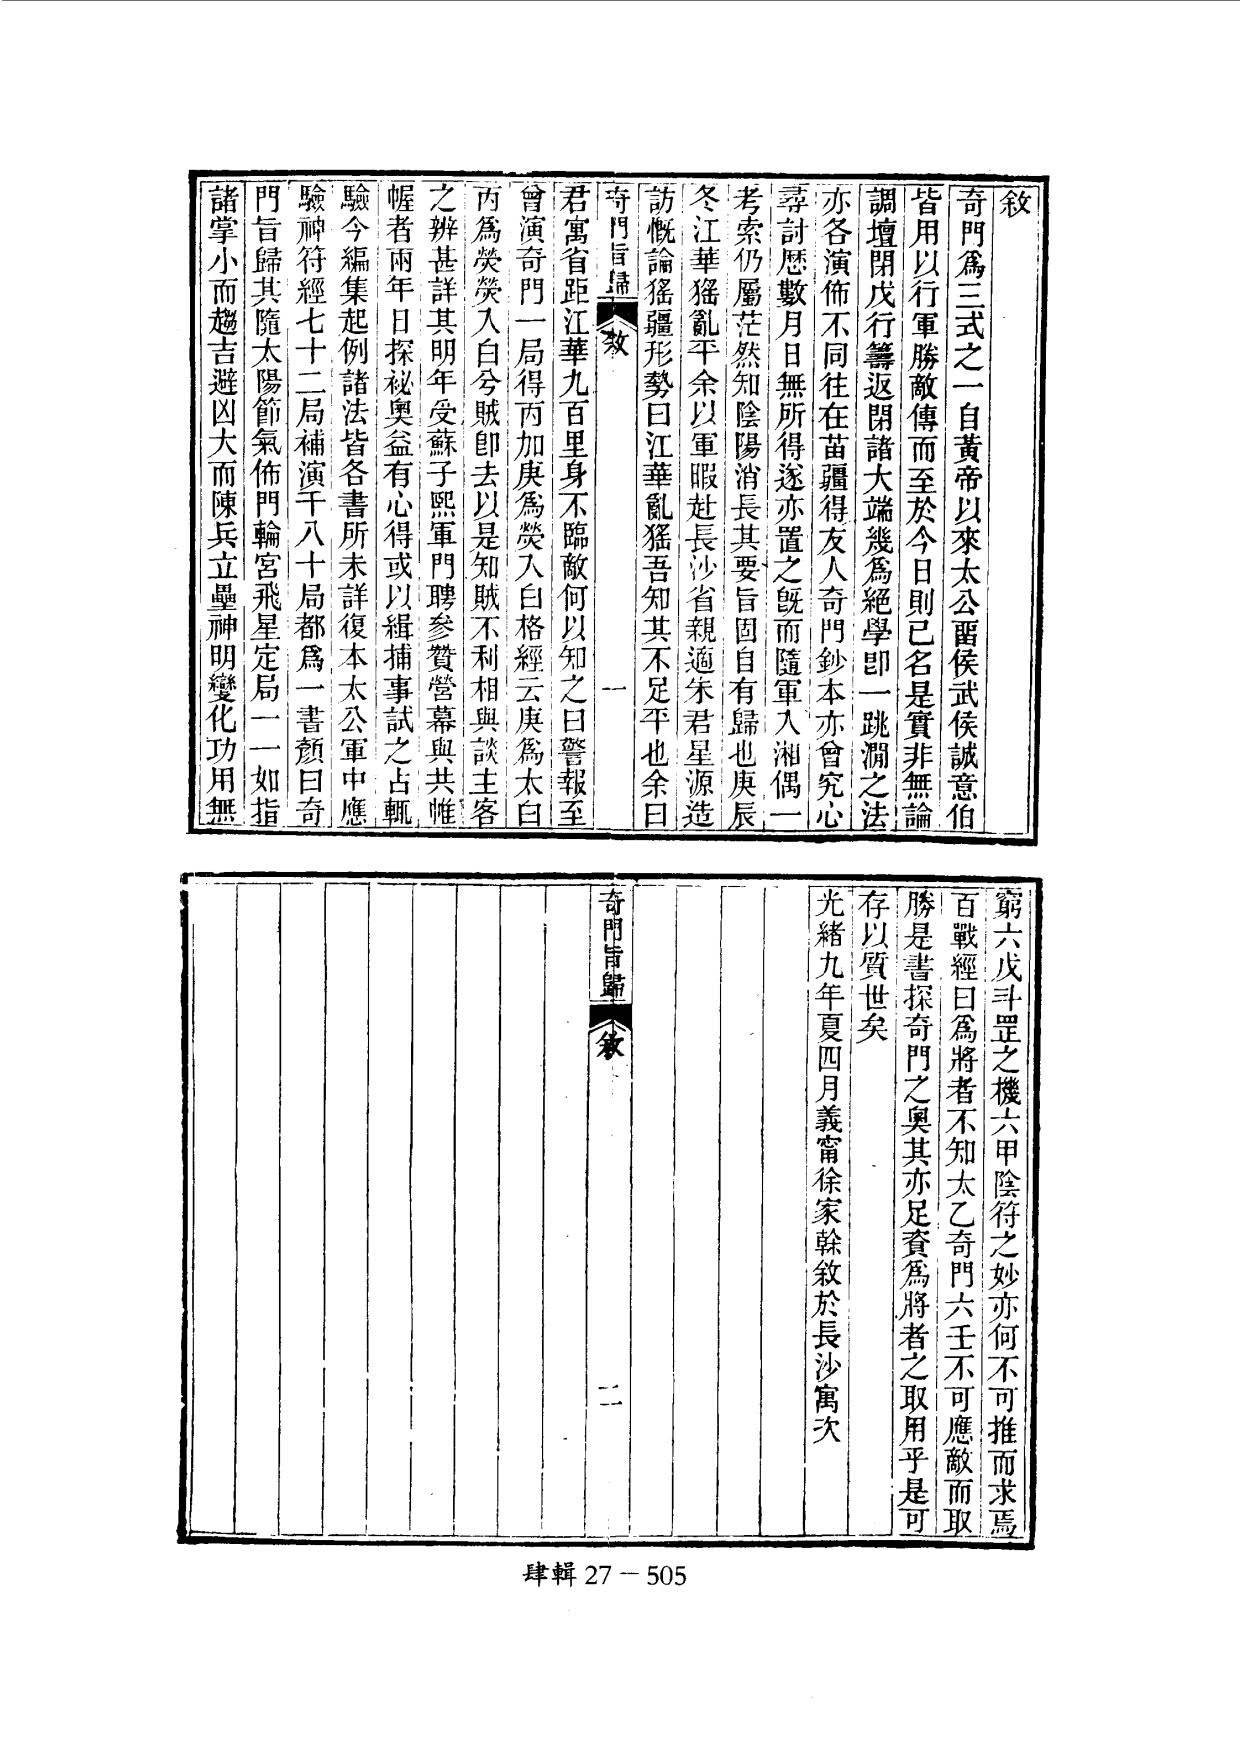 敘
奇門爲三式之一自黃帝以來太公畱侯武侯誠意伯
皆用以行軍勝敵傳而至於今日則已名是實非無論
調壇閉戊行籌返閉諸大端幾爲絕學卽一跳澗之法
亦各演佈不同往在苗疆得友人奇門鈔本亦曾究心
尋討歷數月日無所得遂亦置之旣而隨軍入湘偶一
考索仍屬茫然知陰陽消長其要旨固自有歸也庚辰
冬江華猺亂平余以軍暇赴長沙省親適朱君星源造
訪慨論猺疆形勢曰江華亂猺吾知其不足平也余曰
奇門旨歸 敘 一
君寓省距江華九百里身不臨敵何以知之曰警報至
曾演奇門一局得丙加庚爲熒入白格經云庚爲太白
丙爲熒熒入白兮賊卽去以是知賊不利相與談主客
之辨甚詳其明年受蘇子熙軍門聘參贊營幕與共帷
幄者兩年日探祕奧益有心得或以緝捕事試之占輒
驗今編集起例諸法皆各書所未詳復本太公軍中應
驗神符經七十二局補演千八十局都爲一書顏曰奇
門旨歸其隨太陽節氣佈門輪宮飛星定局一一如指
諸掌小而趨吉避凶大而陳兵立壘神明變化功用無
窮六戊斗罡之機六甲陰符之妙亦何不可推而求焉
百戰經曰爲將者不知太乙奇門六壬不可應敵而取
勝是書探奇門之奧其亦足資爲將者之取用乎是可
存以質世矣
光緒九年夏四月義甯徐家榦敘於長沙寓次
奇門旨歸 敘 二
肆輯 27－505